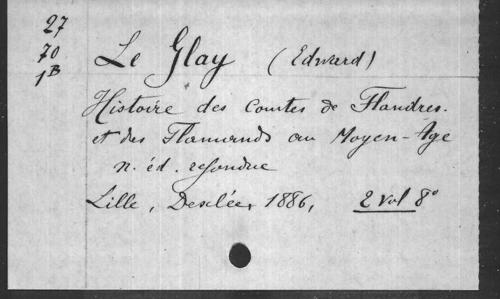 27
70
1B
Le Glay (Edward)
Histoire des Comtes de Flandres.
et des Flamands au Moyen-Age
n. éd. refondue
Lille, Desclée, 1886, 2 Vol 8°